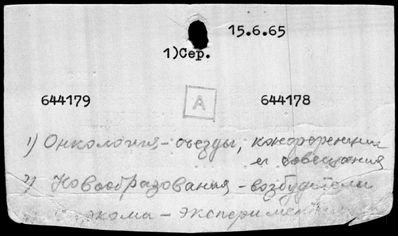 15.6.65
1)Сер.
644179 А 644178
1) Онкология - съезды, конференции
и совещания
2) Новообразования - возбудители
- эксперимент